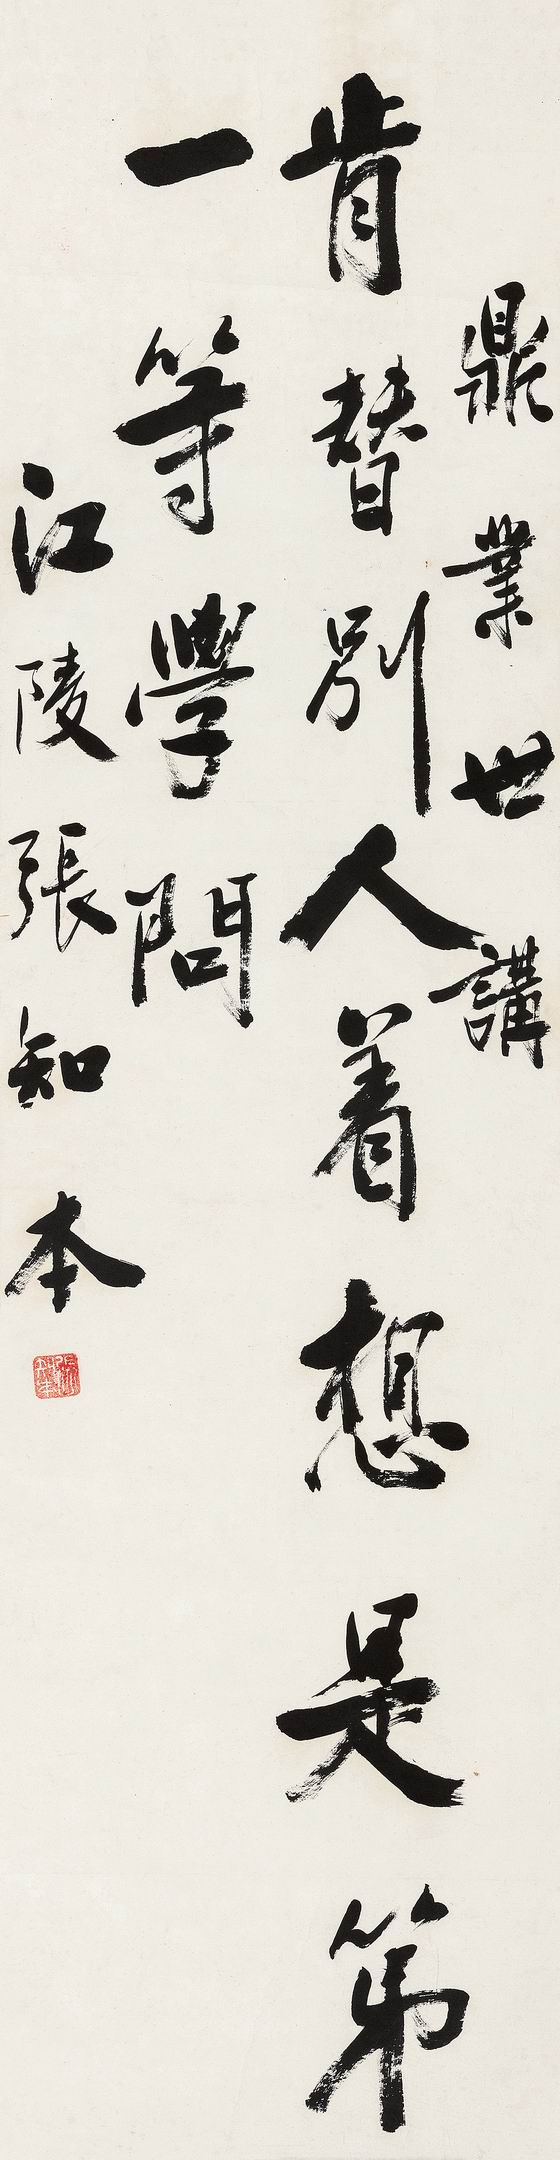 鼎業世講
肯替別人着想是第
一等學問
江陵張知本
張知本